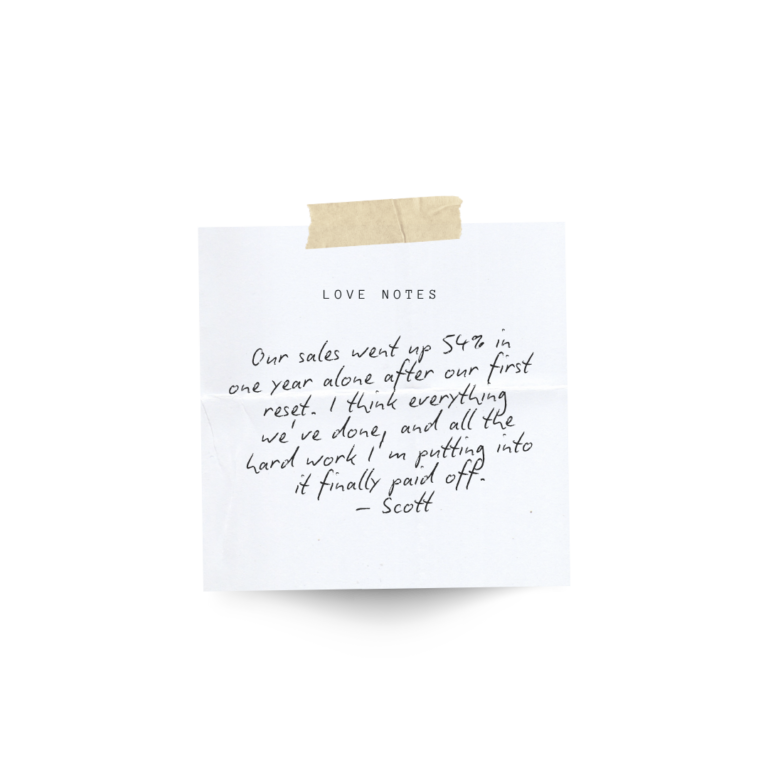 LOVE NOTES
Our sales went up 54% in
one year alone after our first
reset. I think everything
we've done, and all the
hard work I'm putting into
it finally paid off.
– Scott